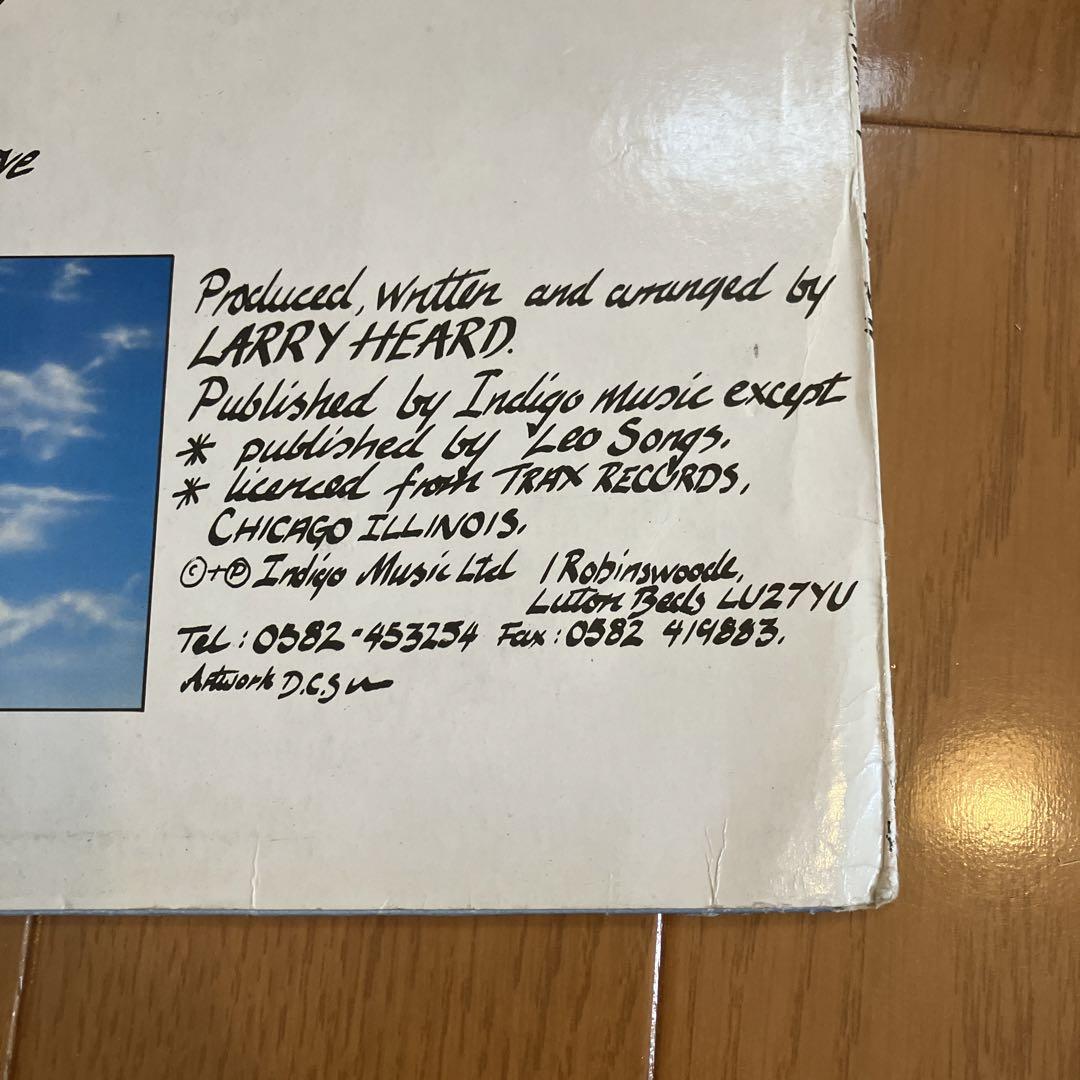 Produced, written and arranged by
LARRY HEARD.
Published by Indigo music except
* published by Leo Songs.
* licenced from TRAX RECORDS,
CHICAGO ILLINOIS.
©+℗ Indigo Music Ltd 1 Robinswoode,
Luton Beds LU27YU
Tel: 0582-453254 Fax: 0582 419883.
Artwork D.C.S